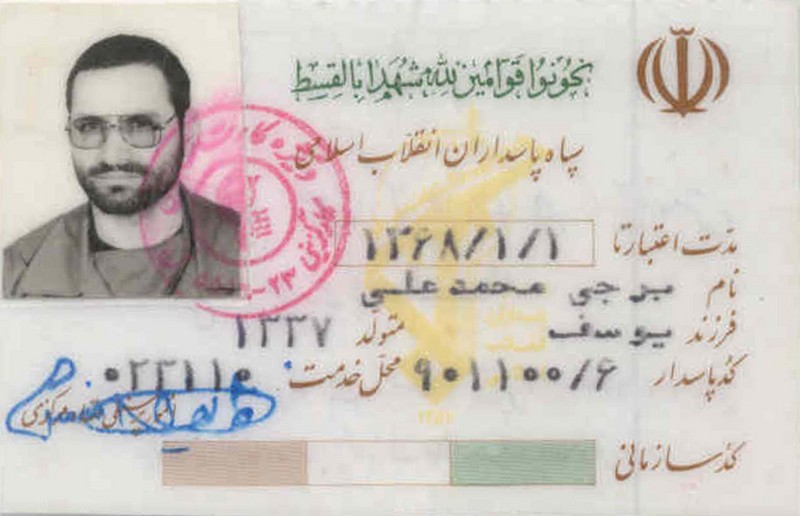 كونوا قوامين لله شهداء بالقسط
سپاه پاسداران انقلاب اسلامی
مدت اعتبار تا ۱۳۶۸/۱/۱
نام برجی محمد علی
فرزند یوسف متولد ۱۳۳۷
کد پاسدار ۹۰۱۱۰۰/۶ محل خدمت: ۰۲۳۱۱۰
کد سازمانی